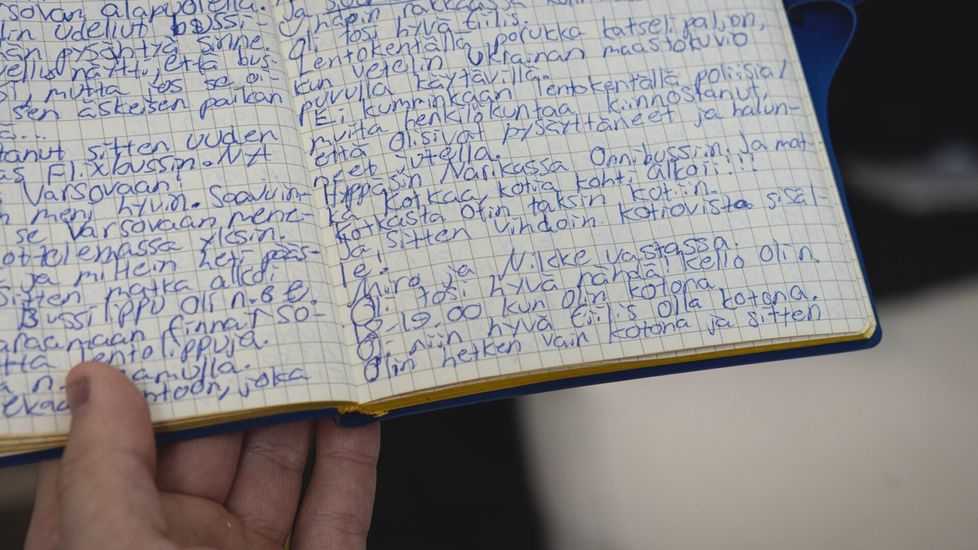 sovan alapuolella.
lin udellut bussi-
än pysähtyä sinne.
näytti, että bus-
mutta jos se oi-
sen äskeisen paikan
tanut sitten uuden
as Flixbussin. Nyt
Varsovaan!
meni hyvin. Saavuin-
se Varsovaan mene-
ottelemassa yksin.
ja miltein heti pääs-
Sitten matka alkoi
Bussilippu oli n. 8 €.
araamaan finnair so-
tta lentolippuja.
a n. aamulla.
ntoon, joka
Ja
hapin rakkaassa
Oli tosi hyvä fiilis.
Lentokentällä porukka katseli paljon,
kun vetelin Ukrainan maastokuvio
puvulla käytävillä.
Ei kumminkaan lentokentällä poliisia/
muita henkilökuntaa kiinnostanut,
että olisivat pysäyttäneet ja halun-
neet jutella.
Hyppäsin Narikassa Onnibussiin. Ja mat-
ka Kotkaa, kotia kohti alkoi!!!
Kotkasta otin taksin kotiin.
Ja sitten vihdoin kotiovista sisäl-
le!
Miro ja Nikke vastassa.
Oli tosi hyvä nähdä! Kello oli n.
18-19.00 kun olin kotona.
Oli niin hyvä fiilis olla kotona.
Olin hetken vain kotona ja sitten